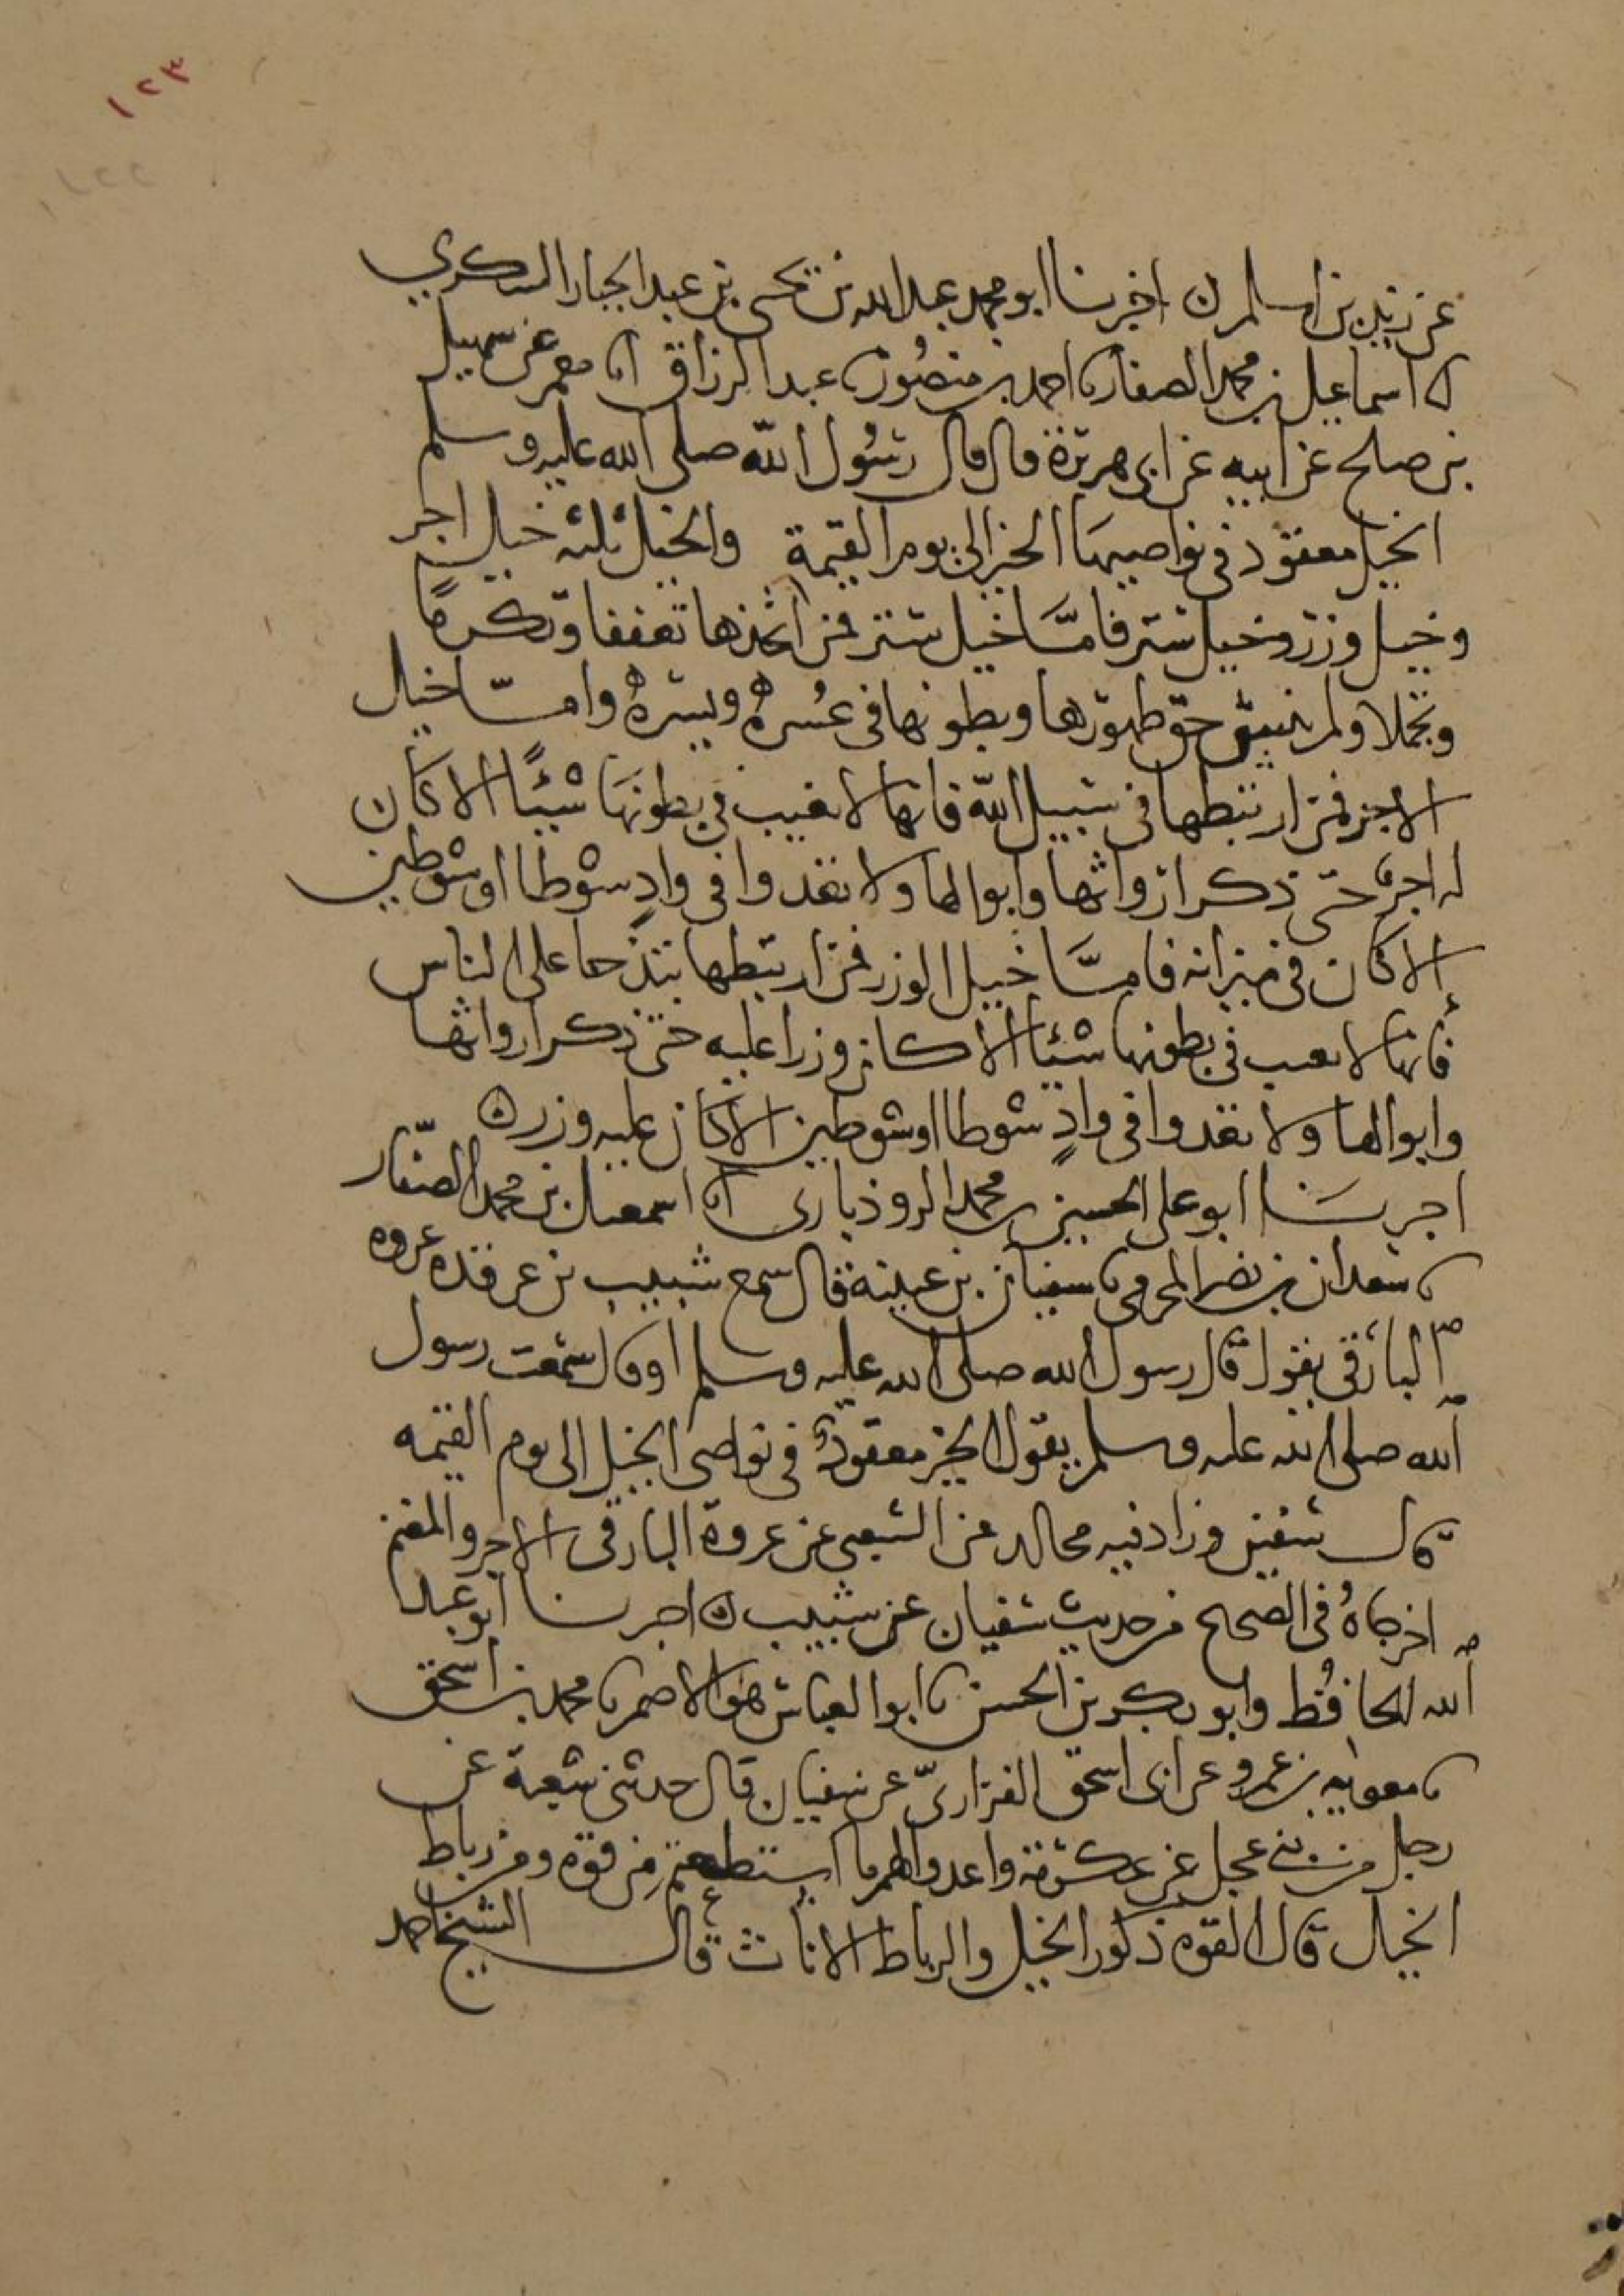 ١٢٣
١٢٢
عن زيد بن اسلم ن اخبرنا ابو محمد عبد الله بن يحيى بن عبد الجبار السكري
انا اسماعيل بن محمد الصفار نا احمد بن منصور نا عبد الرزاق انا معمر عن سهيل
بن صلح عن ابيه عن ابي هريرة قال قال رسُول الله صلى الله عليه وسلم
الخيل معقود في نواصيهَا الخير الى يوم القيمة والخيل ثلثه خيل اجر
وخيل وزر وخيل ستر فامَّا خيل ستر فمن اتخذها تعففا وتكرمًا
وتجملا ولم ينس حق ظهورها وبطونها في عُسره ويسره وامّا خيل
الاجر فمن ارتبطها في سبيل الله فانها لا تغيب في بطونهَا شيئًا الا كان
له اجر حتى ذكر ارواثها وابوالها ولا تعدوا في وادٍ شوطا او شوطين
الا كان في ميزانه فامَّا خيل الوزر فمن ارتبطها تبذخا على الناس
فانها لا تغيب في بطونها شئا الا كان وزرا عليه حتى ذكر ارواثها
وابوالها ولا تعدوا في وادٍ شوطا او شوطين الا كان عليه وزر ه
اخبرنَا ابو علي الحسين بن محمد الروذباري انا اسمعيل بن محمد الصفّار
نا سعدان بن نصر المخرمي نا سفيان بن عيينة قال سمع شبيب بن غرقده عروه
البارقي يقول قال رسول الله صلى الله عليه وسلم او قال سمعت رسول
الله صلى الله عليه وسلم يقول الخير معقودٌ في نواصي الخيل الى يوم القيمه
قال سفين وزاد فيه مجالد عن الشعبي عن عروة البارقي الاجر والمغنم
اخرجاهُ في الصحيح من حديث سفيان عن شبيب ه اخبرنا ابو عبد
الله الحافظ وابو بكر بن الحسن نا ابو العباس هو الاصم نا محمد بن اسحق
نا معويه بن عمرو عن ابي اسحق الفزاريّ عن سفيان قال حدثني شعبة عن
رجل من بني عجل عن عكرمة واعدوا لهم ما استطعتم من قوه ومن رباط
الخيل قال القوه ذكور الخيل والرباط الاناث قال الشيخ احمد